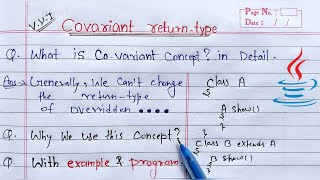 V.V.I
Covariant return-type
Page No.
Date : / /
Q. What is Co-variant Concept? in Detail.
Ans→ Generally, We Can't change
the return-type
of overridden ....
Q. Why We use this Concept?
Q. With example & Program
Class A
{
A show()
}
Class B extends A
{
B show()
Java